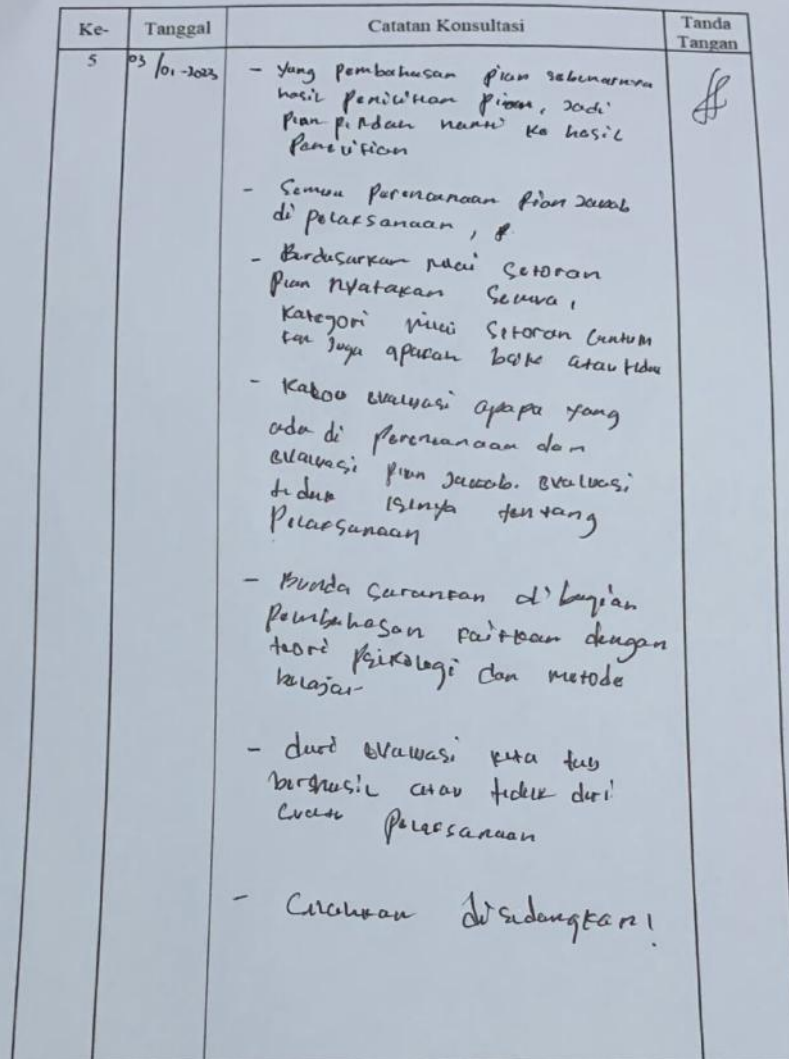 Ke-
Tanggal
Catatan Konsultasi
Tanda
Tangan
5
03/01-2023
- Yang pembahasan pian sebenarnya
hasil penelitian pian, jadi
pian pindah nanti ke hasil
penelitian
- Semua perencanaan pian jawab
di pelaksanaan,
- Berdasarkan nilai setoran
pian nyatakan semua,
kategori nilai setoran cantum
kan juga apakah baik atau tidak
- Kalau evaluasi apapa yang
ada di perencanaan dan
evaluasi pian jawab. evaluasi
tidak isinya tentang
Pelaksanaan
- Bunda sarankan di bagian
pembahasan kaitkan dengan
teori psikologi dan metode
belajar
- dari evaluasi kita tau
berhasil atau tidak dari
pelaksanaan
- Silahkan disidangkan!